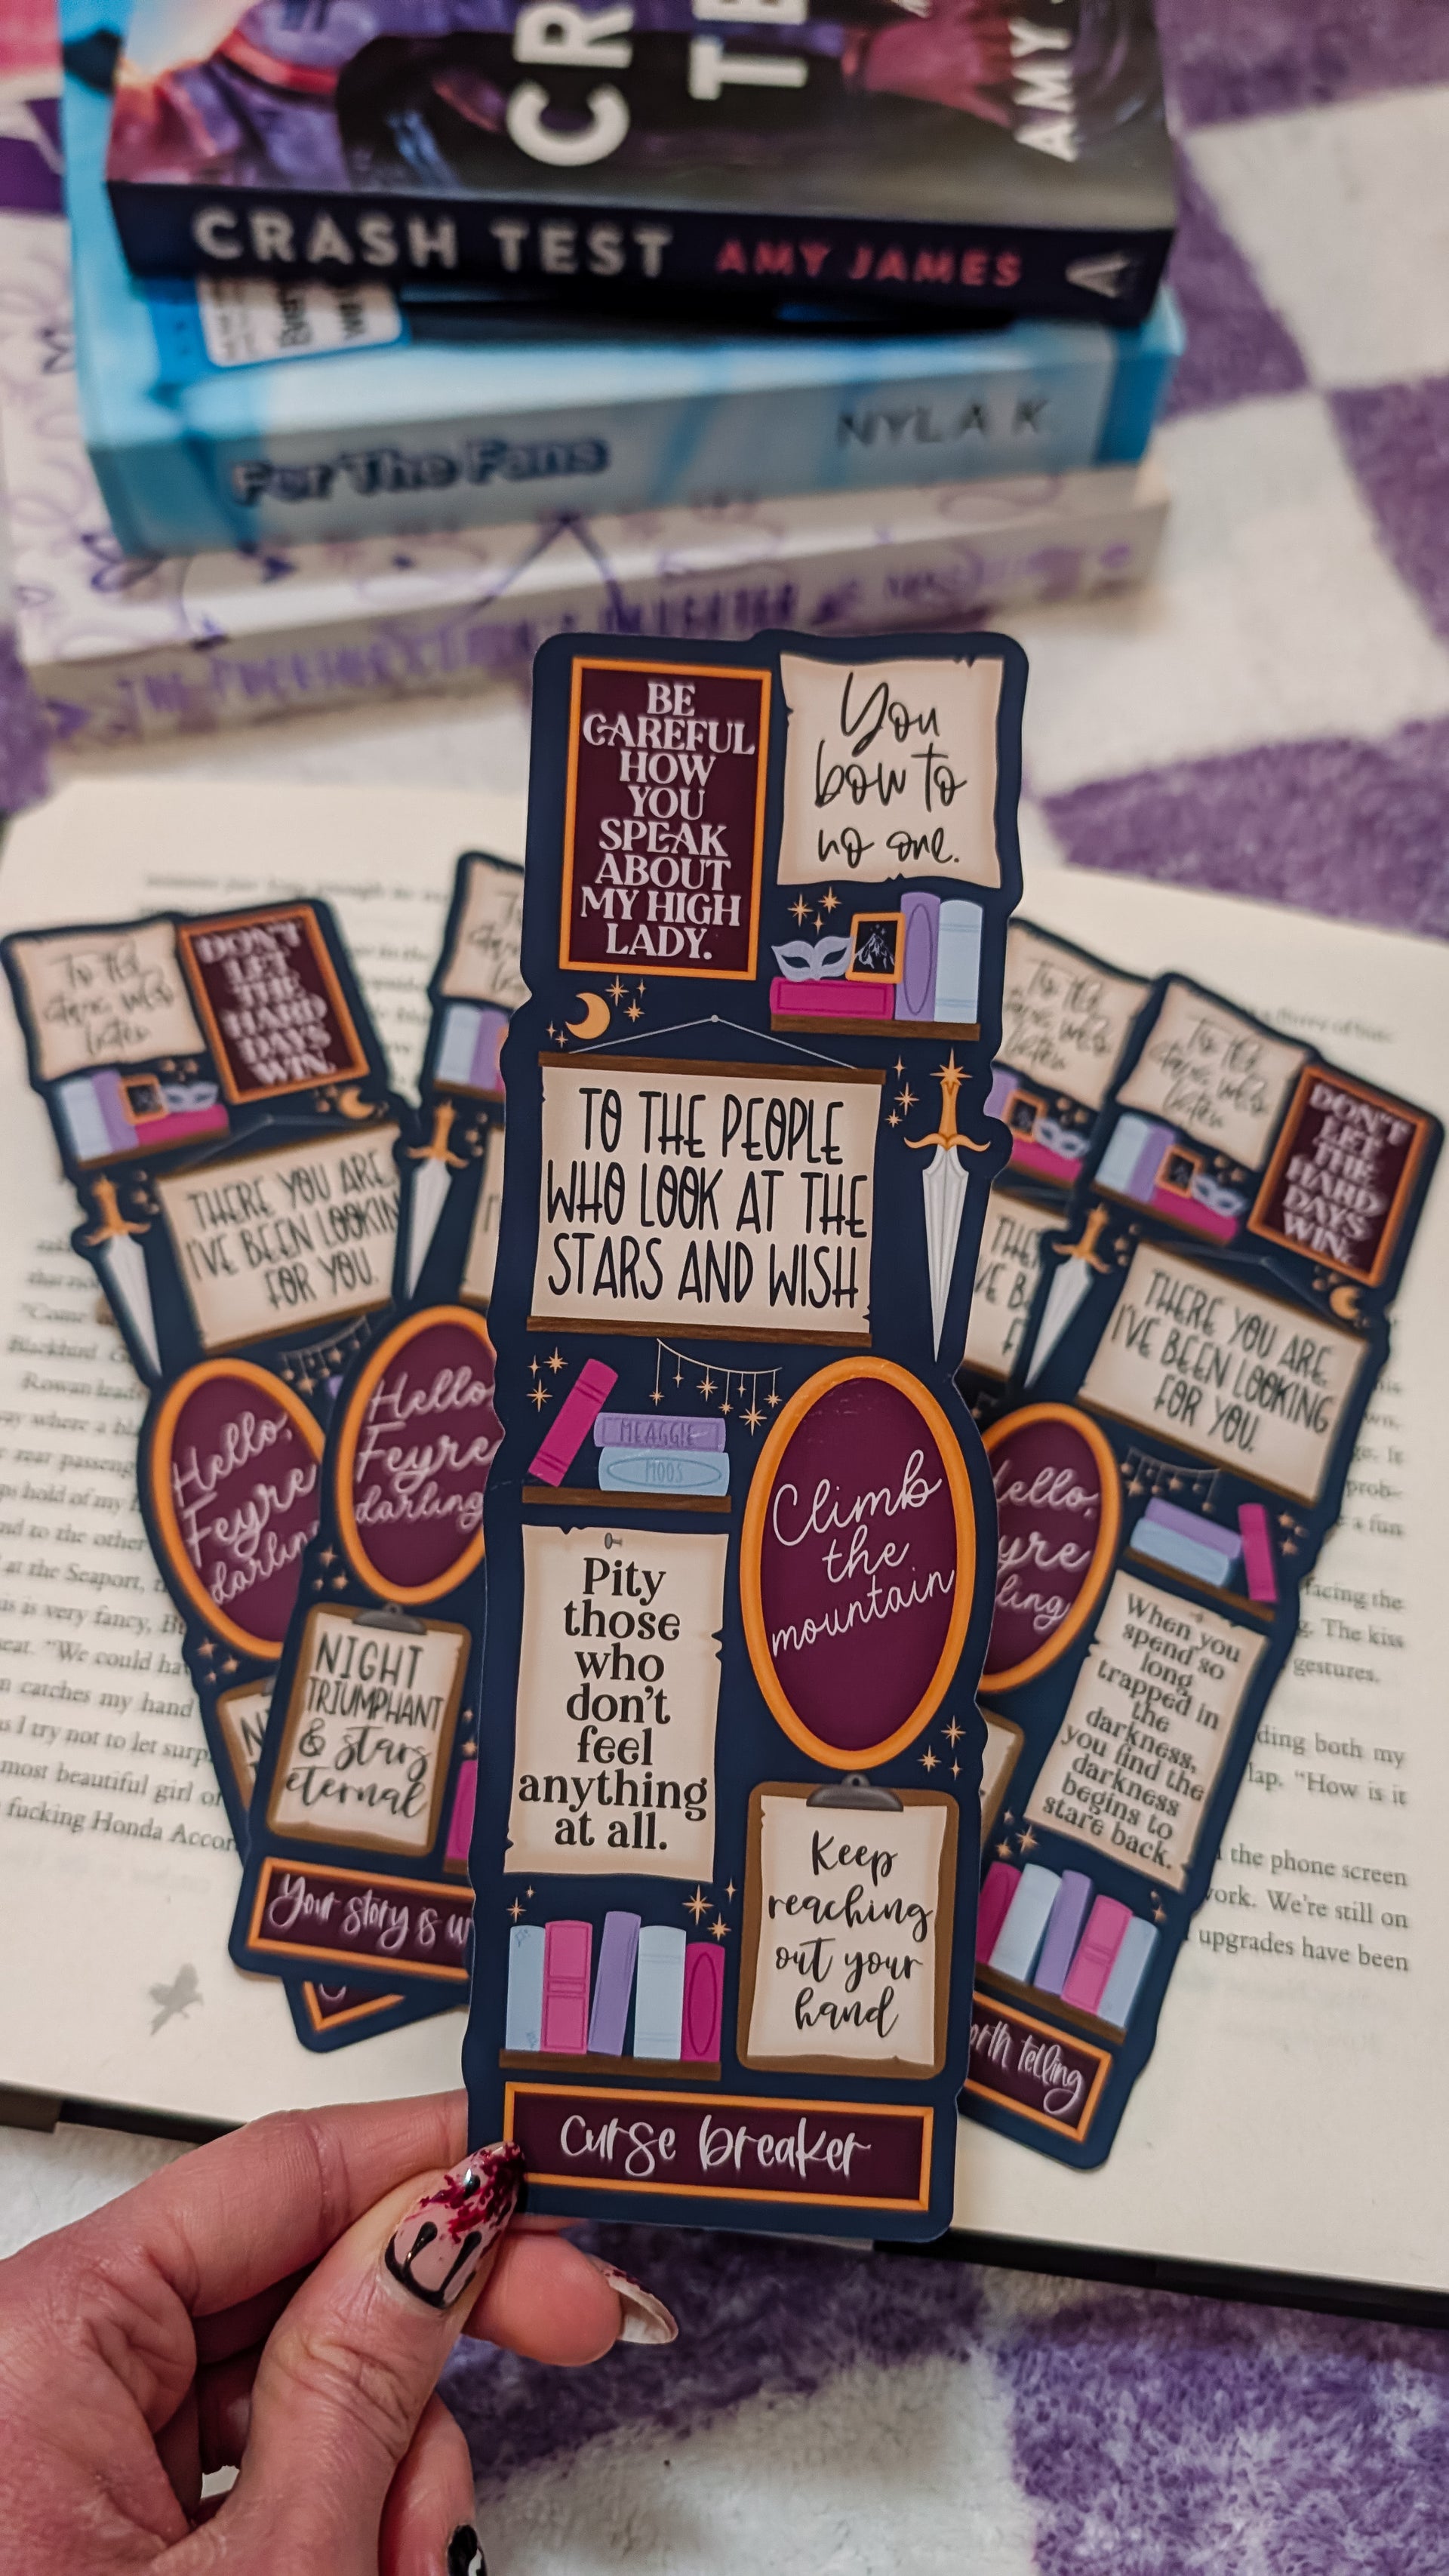 CR
TE
AMY
CRASH TEST AMY JAMES
For The Fans
NYLA K.
BE
CAREFUL
HOW
YOU
SPEAK
ABOUT
MY HIGH
LADY.
You
bow to
no one.
TO THE PEOPLE
WHO LOOK AT THE
STARS AND WISH
MEAGGIE
MODS
Climb
the
mountain
Pity
those
who
don't
feel
anything
at all.
Keep
reaching
out your
hand
Curse breaker
DON'T
LET
THE
HARD
DAYS
WIN.
THERE YOU ARE
I'VE BEEN LOOKIN
FOR YOU.
Hello,
Feyre
darlin
Hello,
Feyre
darling
NIGHT
TRIUMPHANT
& stars
eternal
Your story is w
To the
stars who
listen
DON'T
LET
THE
HARD
DAYS
WIN.
THERE YOU ARE,
I'VE BEEN LOOKING
FOR YOU.
ello,
yre
ling
When you
spend so
long
trapped in
the
darkness,
you find the
darkness
begins to
stare back.
orth telling
Rowan lead
at the Seaport,
is very fancy, B
seat. "We could ha
catches my hand
as I try not to let surp
most beautiful girl o
fucking Honda Accor
prob-
a fun
facing the
g. The kiss
gestures.
ding both my
lap. "How is it
the phone screen
work. We're still on
upgrades have been